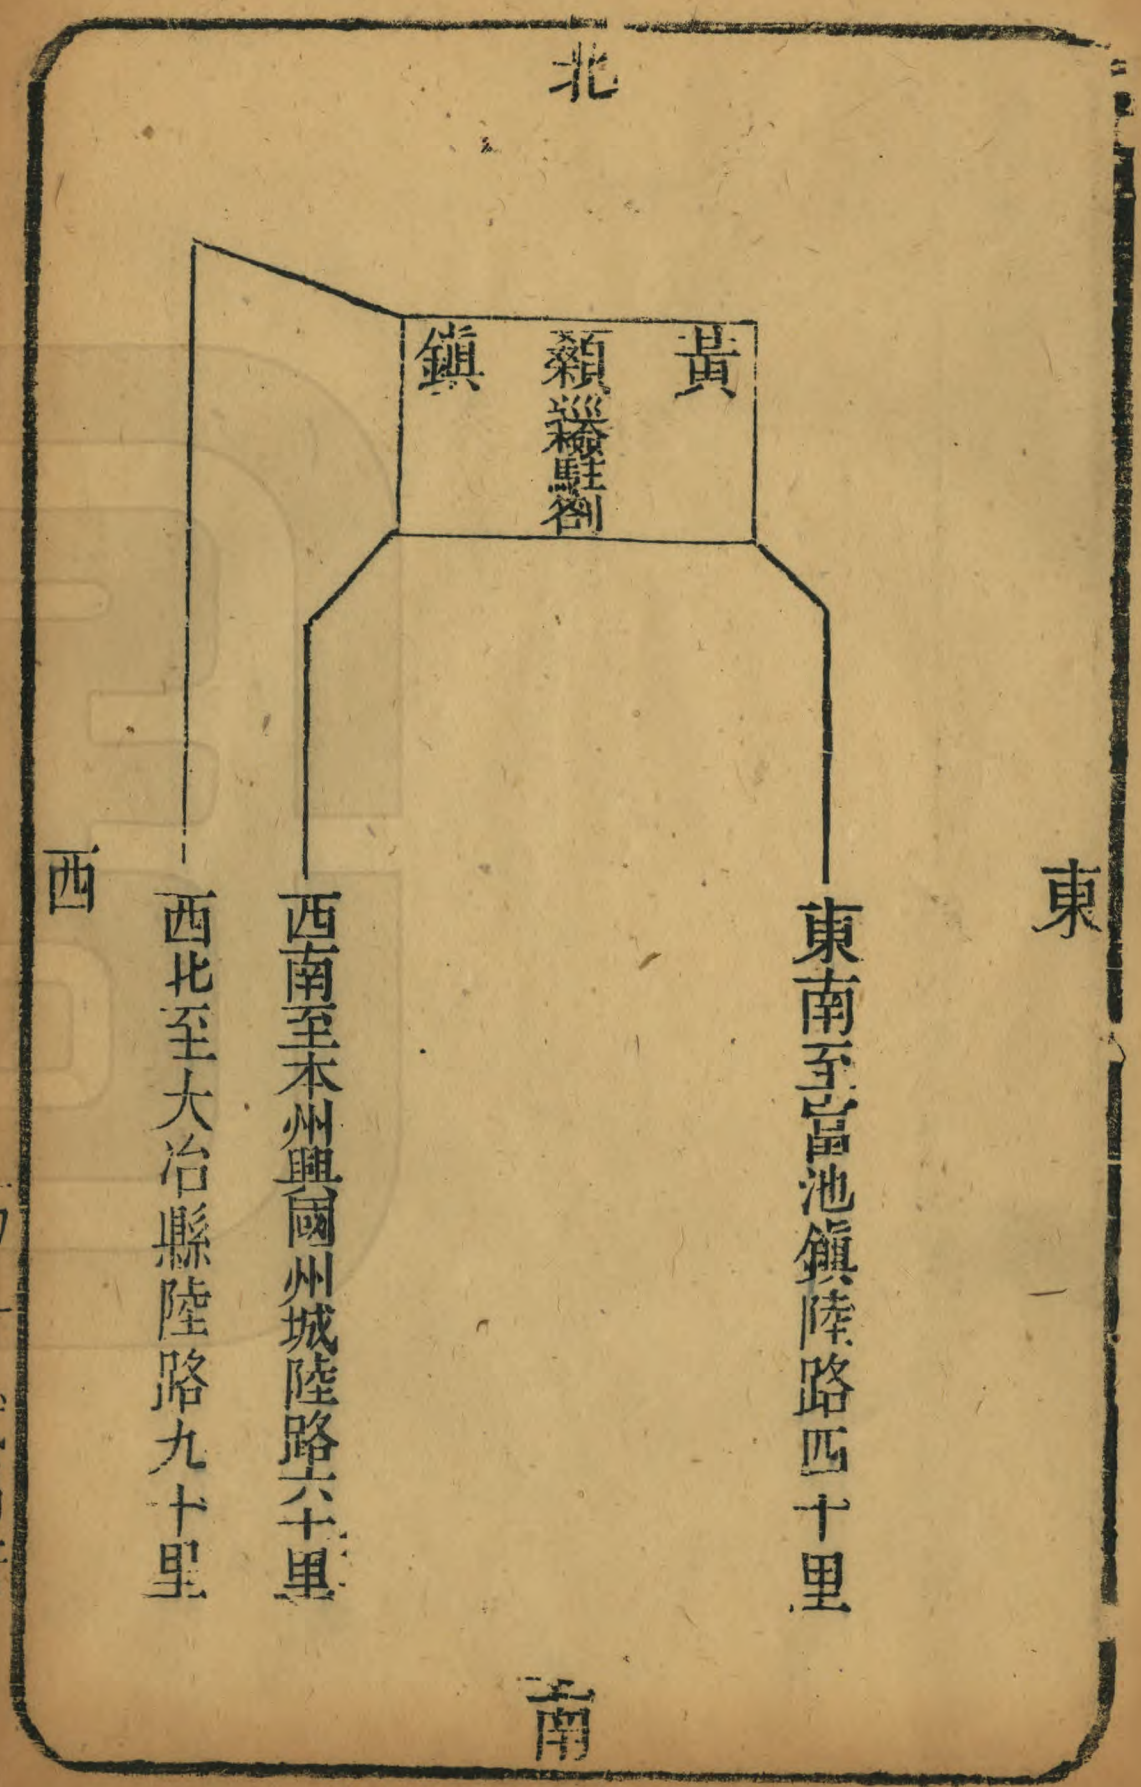 北
黃顙鎮
巡檢駐劄
東
東南至富池鎮陸路四十里
西南至本州興國州城陸路六十里
西北至大冶縣陸路九十里
西
南